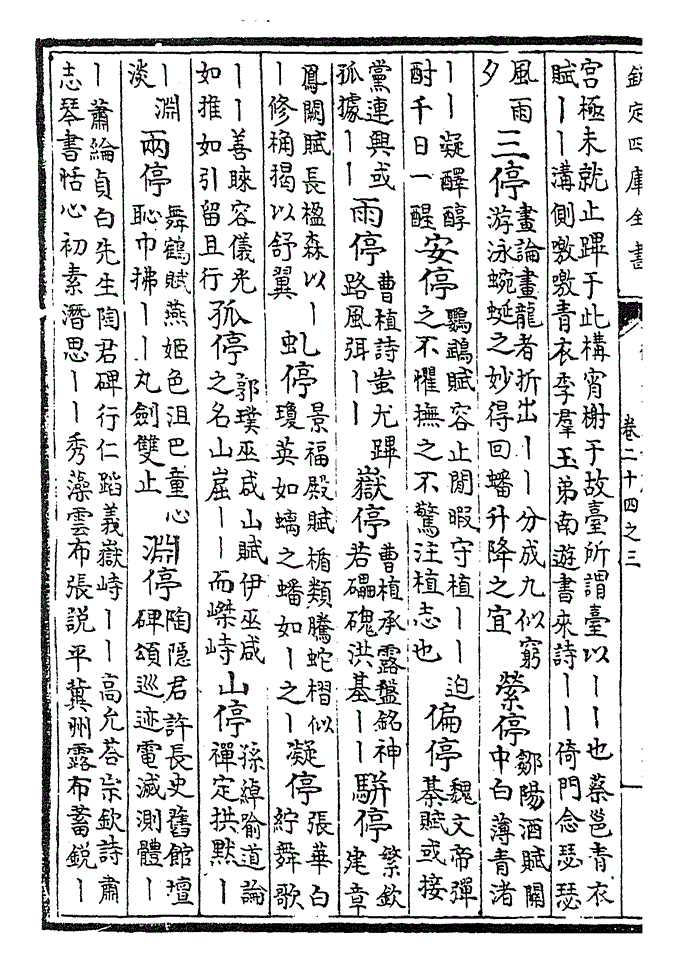 欽定四庫全書
卷二十四之三
宫極未就止蹕于此構宵榭于故臺所謂臺以丨丨也蔡邕青衣
賦丨丨溝側噭噭青衣李羣玉弟南遊書來詩丨丨倚門念瑟瑟
風雨
夕
三停
畫論畫龍者折出丨丨分成九似窮
游泳蜿蜒之妙得回蟠升降之宜
縈停
鄒陽酒賦關
中白薄青渚
丨丨凝醳醇
酎千日一醒
安停
鸚鵡賦容止閒暇守植丨丨迫
之不懼撫之不驚注植志也
偏停
魏文帝彈
棊賦或接
黨連興或
孤據丨丨
雨停
曹植詩蚩尤蹕
路風弭丨丨
嶽停
曹植承露盤銘神
若礧磈洪基丨丨
駢停
繁欽
建章
鳳闕賦長楹森以丨
丨修桷揭以舒翼
虬停
景福殿賦楯類騰蛇槢似
瓊英如螭之蟠如丨之丨
凝停
張華白
紵舞歌
丨丨善睞容儀光
如推如引留且行
孤停
郭璞巫咸山賦伊巫咸
之名山崛丨丨而嵥峙
山停
孫綽喻道論
禪定拱默丨
丨淵
淡
兩停
舞鶴賦燕姬色沮巴童心
恥巾拂丨丨丸劍雙止
淵停
陶隱君許長史舊館壇
碑頌巡迹電滅測體丨
丨蕭綸貞白先生陶君碑行仁蹈義嶽峙丨丨高允荅宗欽詩肅
志琴書恬心初素潛思丨丨秀藻雲布張説平冀州露布蓄鋭丨